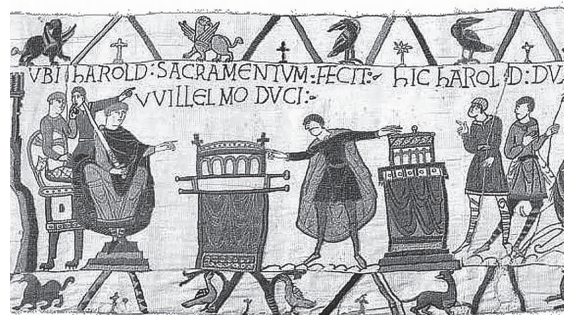 VBI hAROLD: SACRAMENTVM: FECIT:- hIC hAROLD: DV
VVILLELMO DVCI:-